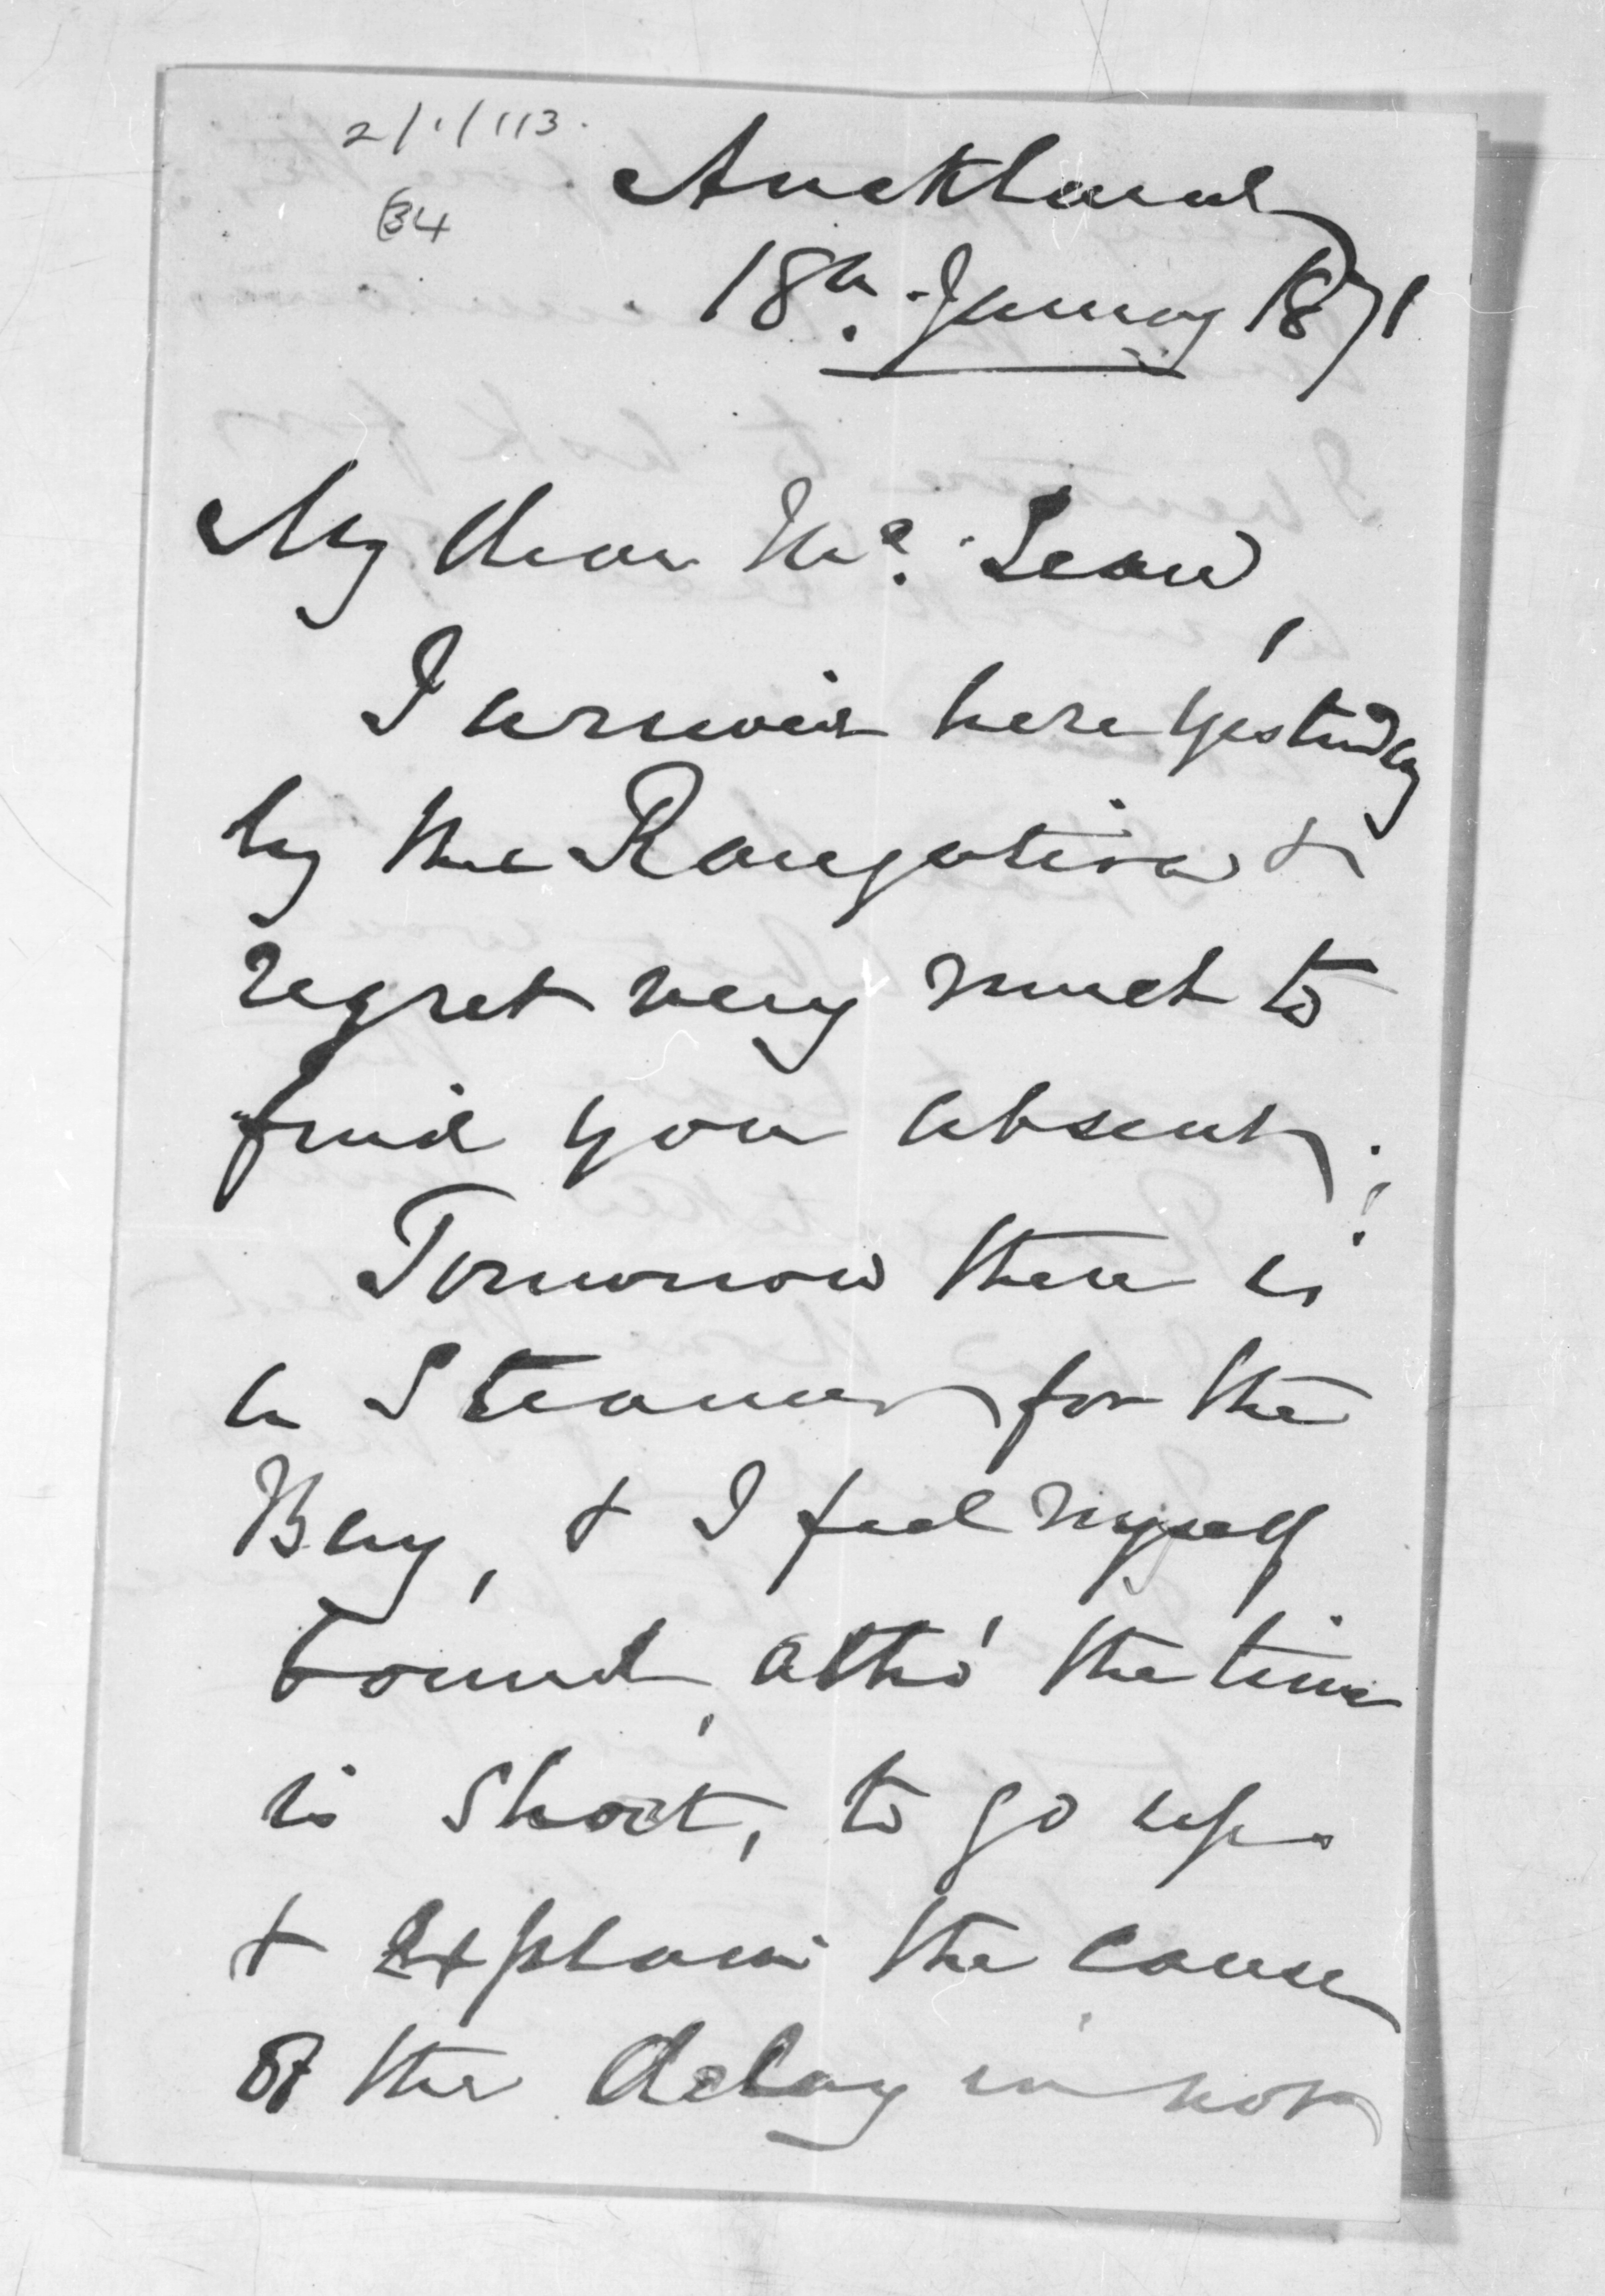 2/1/113.
34
Auckland
18th. January 1871
My dear McLean,
I arrived here yesterday
by the Rangatira &
regret very much to
find you absent.
Tomorrow there is
a Steamer for the
Bay, & I feel myself
bound, altho' the time
is short, to go up
& explain the cause
of the delay in not